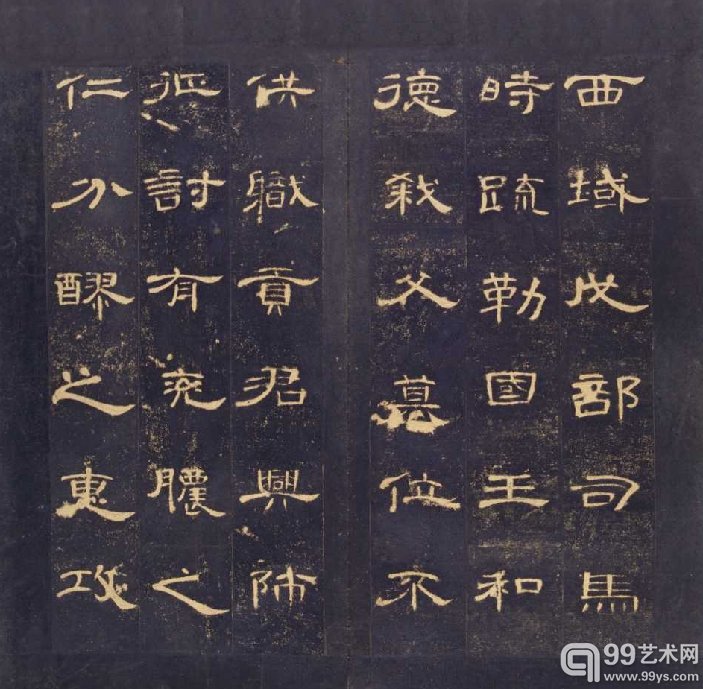 西域戊部司馬
時疏勒國王和
德弒父篡位不
供職貢君興師
征討有兖膿之
仁分醪之惠攻
99艺术网
www.99ys.com